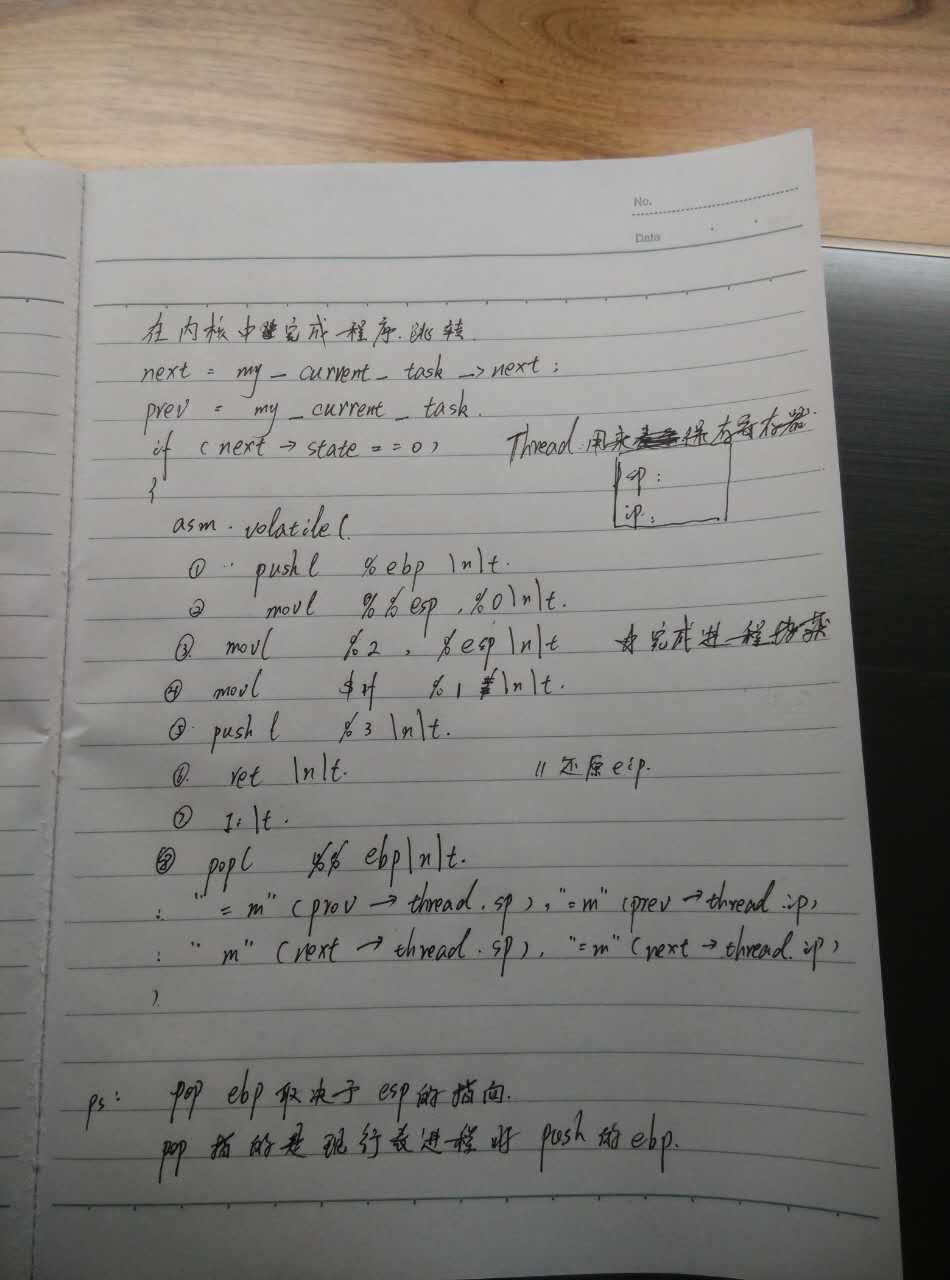 No.
Date
在内核中完成程序.跳转
next = my_current_task->next;
prev = my_current_task.
if (next → state == 0) Thread 用来保存寄存器.
{ sp:
ip:
asm volatile(
① pushl %ebp \n\t.
② movl %%esp, %0\n\t.
③ movl %2, %esp\n\t 完成进程切换
④ movl $1f %1 \n\t.
⑤ pushl %3 \n\t.
⑥ ret \n\t. // 还原eip.
⑦ 1:\t.
⑧ popl %% ebp\n\t.
: "=m" (prev → thread.sp), "=m" (prev → thread.ip)
: "m" (next → thread.sp), "=m" (next → thread.ip)
)
ps: pop ebp 取决于 esp的指向.
pop 指的是现行进程时 push 的ebp.